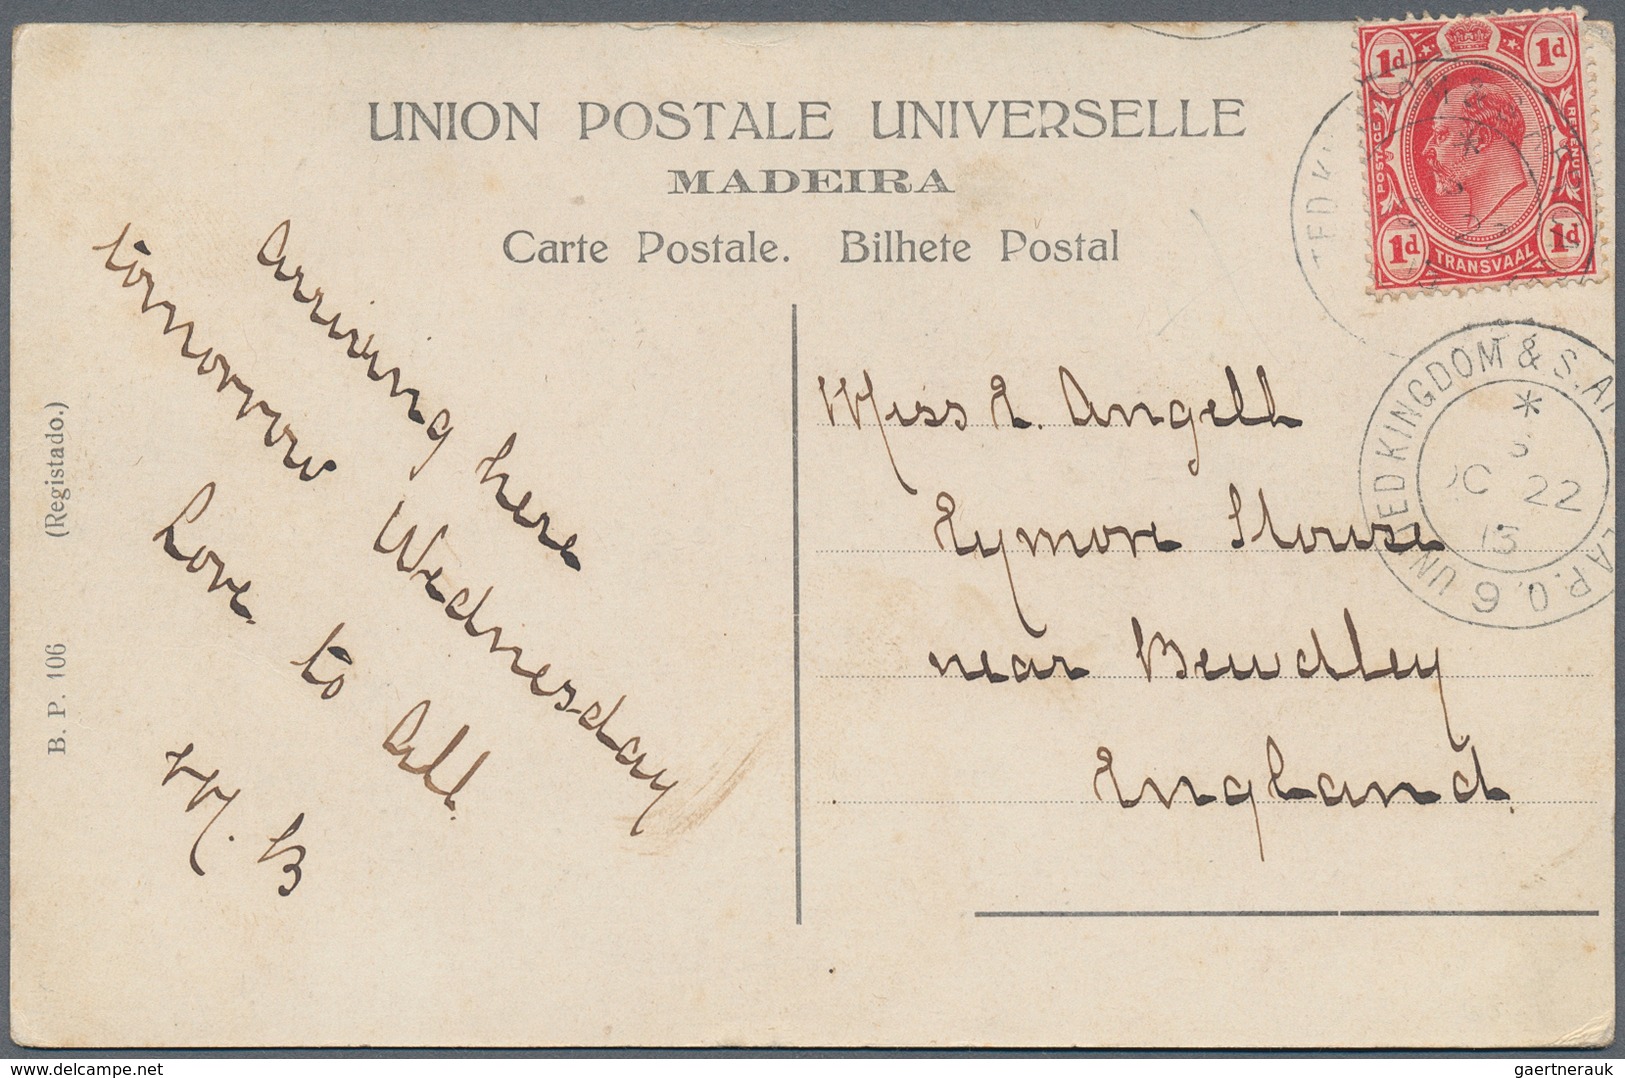 UNION POSTALE UNIVERSELLE
MADEIRA
Carte Postale. Bilhete Postal
1d 1d
POSTAGE REVENUE
1d 1d
TRANSVAAL
22
UNITED KINGDOM & S. A
SEA P.O. 6
OC 22
13
arriving here
tomorrow Wednesday
Love to all
H. B
Miss E. Angell
Eymore House
near Bewdley
England.
B. P. 106 (Registado.)
www.delcampe.net
gaertnerauk